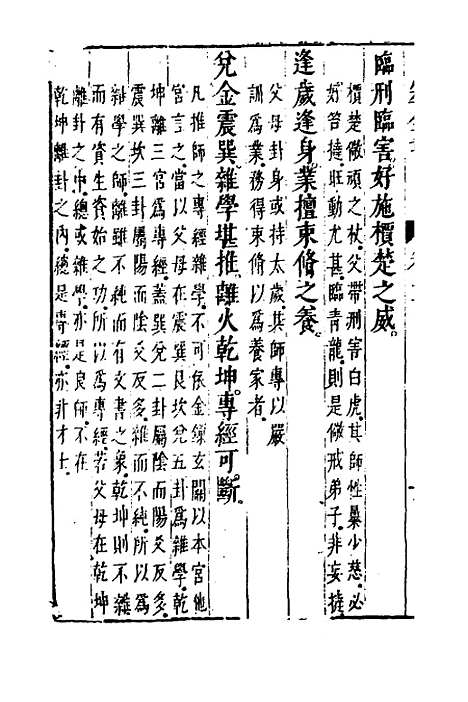 臨刑臨害好施檟楚之威。
檟楚儆頑之杖。父帶刑害白虎。其師性暴少慈。必
好笞撻。旺動尤甚。臨青龍。則是儆戒弟子。非妄撻。
逢歲逢身。業擅束脩之養。
父母卦身或持太歲。其師專以嚴
訓爲業。務得束脩以爲養家者。
兌金震巽。雜學堪推。離火乾坤。專經可斷。
凡推師之專經雜學。不可依金鎖玄關以本宮他
宮言之。當以父母在震巽艮坎兌五卦爲雜學。乾
坤離三宮爲專經。蓋巽兌二卦屬陰而陽爻反多。
震艮坎三卦屬陽而陰爻反多。雜而不純。所以爲
雜學之師。離雖不純而有文書之象。乾坤則不雜
而有資生資始之功。所以爲專經。若父母在乾坤
離卦之中。總或雜學。亦是良師。不在
乾坤離卦之內。總是專經。亦非才士。